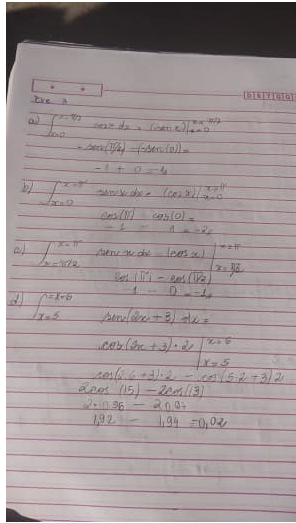 D S T Q Q
a) ∫ x=π/2 x=0 cos x dx = (-sen x) | x=π/2 x=0
- sen(π/2) - (-sen(0)) =
-1 + 0 = -1
b) ∫ x=π x=0 sen x dx = (cos x) | x=π x=0
cos(π) - cos(0) =
-1 - 1 = -2
c) ∫ x=π x=π/2 sen x dx = (cos x) | x=π x=π/2
cos(π) - cos(π/2)
-1 - 0 = -1
d) ∫ x=6 x=5 sen(2x + 3) dx =
cos(2x + 3) · 2 | x=6 x=5
cos(2·6 + 3)·2 - cos(5·2 + 3)2
2cos(15) - 2cos(13)
2·0,96 - 2·0,97
1,92 - 1,94 = 0,02